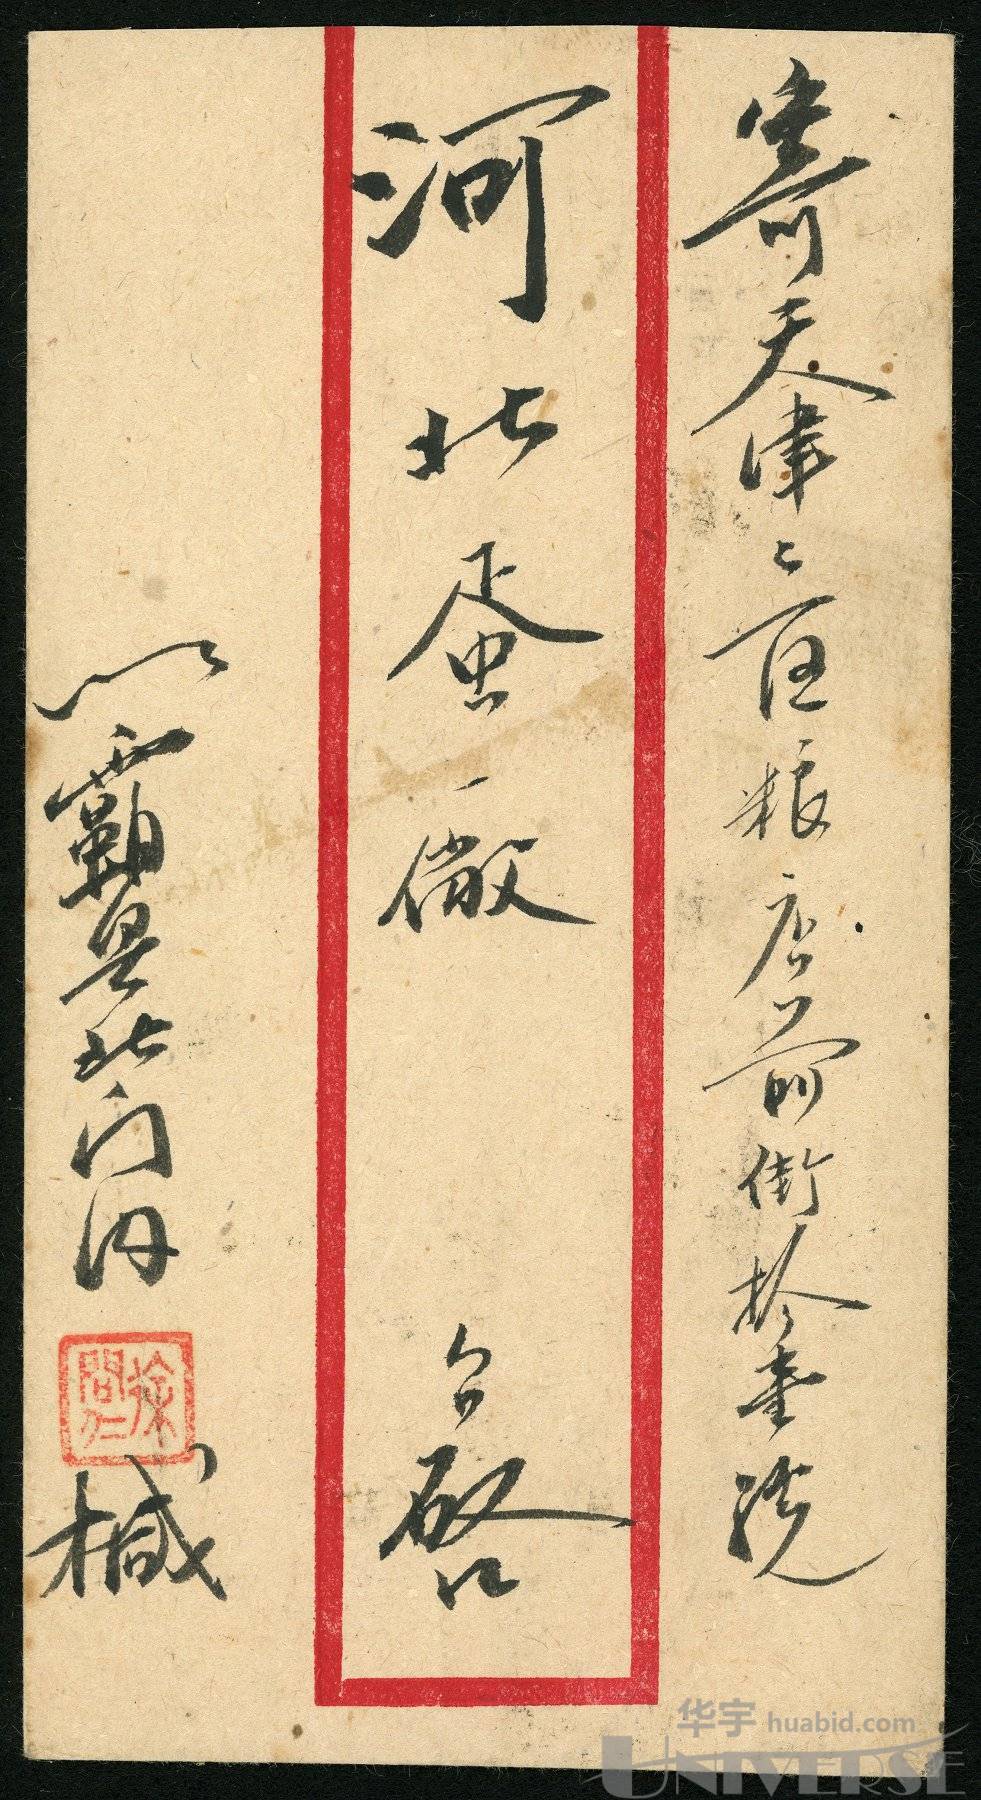 寄天津二区粮店前街拾壹號
河北蛋厰 台啓
霸县北门内
徐問仁
椷
华宇 huabid.com
UNIVERSE